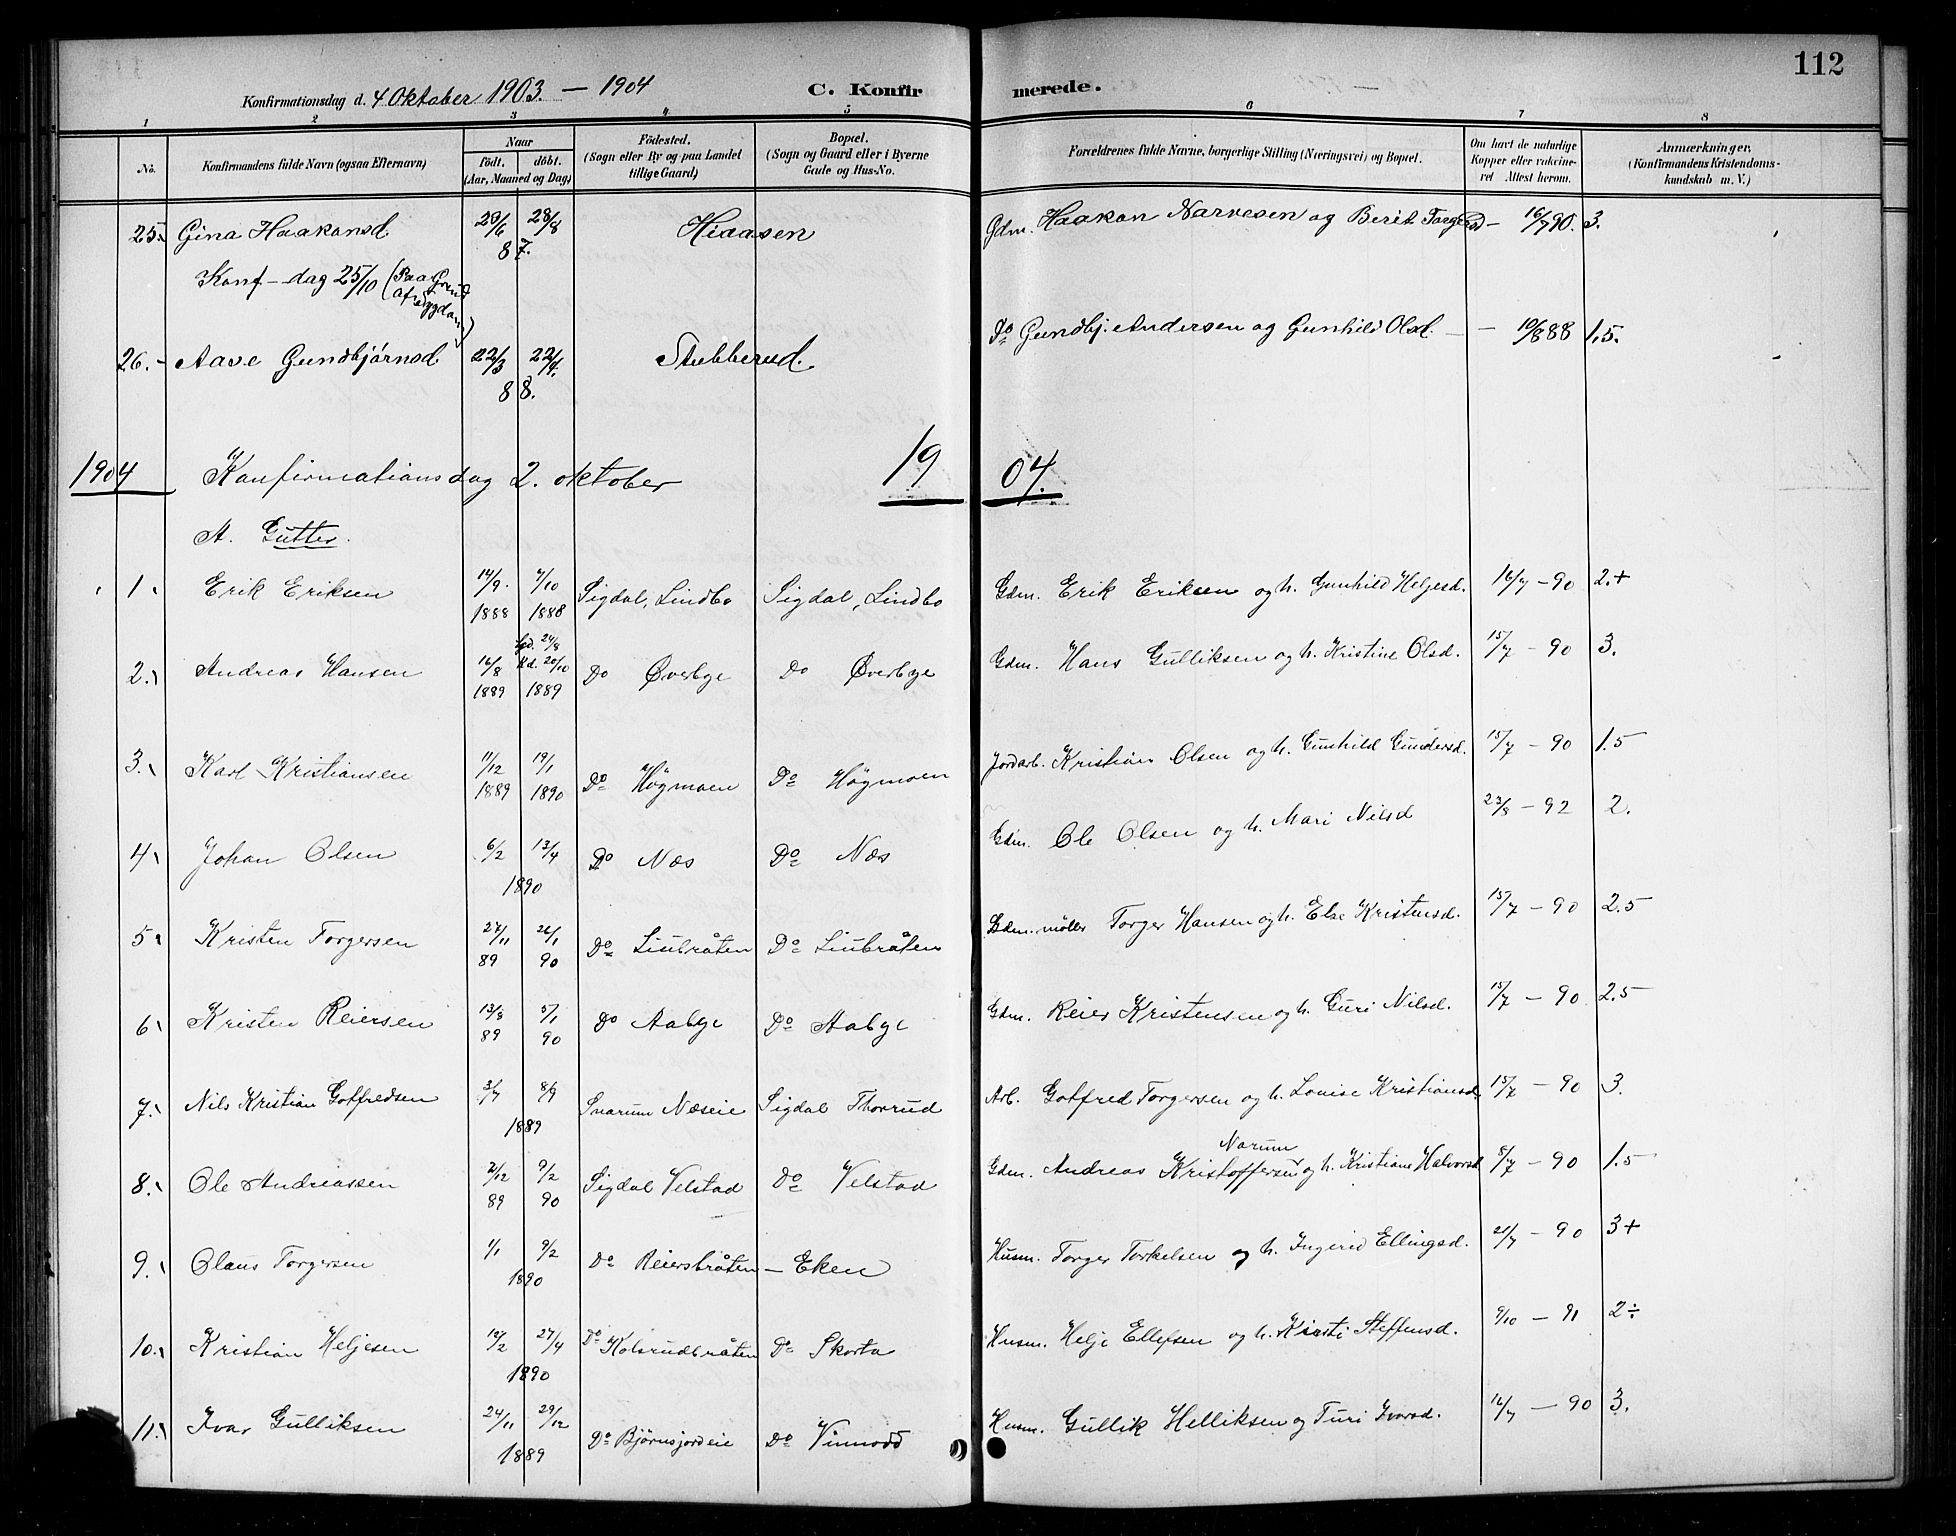 112
Konfirmationsdag d. 4 Oktober 1903. — 1904 C. Konfirmerede.
1 2 3 4 5 6 7 8
No. Konfirmandens fulde Navn (ogsaa Efternavn) Naar født. døbt. (Aar, Maaned og Dag) Födested. (Sogn eller By og paa Landet tillige Gaard) Bopæl. (Sogn og Gaard eller i Byerne Gade og Hus-No. Forældrenes fulde Navne, borgerlige Stilling (Næringsvei) og Bopæl. Om havt de naturlige Kopper eller vakcineret Attest herom. Anmærkninger. (Konfirmandens Kristendomskundskab m. V.)
25. Gina Haakansd 28/8 87. Hiaasen Gdm. Haakon Narvesen og Berit Torgersd — 16/7 90. 3.
Konf-dag 25/10 (Paa Grund af sygdom)
26. Aase Gundbjørnsd 22/3 22/4. 88. Stubberud Do Gundbj. Andersen og Gunhild Olsd. — 19/6 88 1.5.
1904 Konfirmationsdag 2. oktober 1904.
A. Gutter.
1. Erik Eriksen 14/9. 1888 7/10 1888 Sigdal, Lindbo Sigdal, Lindbo Gdm. Erik Eriksen og h. Gunhild Helgesd. 16/7 — 90 2.+
2. Andreas Hansen 16/8 1889 hjd. 24/8 kd. 20/10 1889 Do Øverbye Do Øverbye Gdm. Hans Gulliksen og h. Kristine Olsd. 15/7 — 90 3.
3. Karl Kristiansen 11/12 1889 19/1 1890 Do Høgmoen Do Høgmoen Jordarb. Kristian Olsen og h. Gunhild Gundersd. 15/7 — 90 1.5
4. Johan Olsen 6/2 13/4 1890 Do Næs Do Næs Gdm. Ole Olsen og h. Mari Nilsd 23/8 — 92 2.
5. Kristen Torgersen 27/11 89 26/1 90 Do Liubråten Do Liubråten Gdm. møller Torger Hansen og h. Else Kristensd. 15/7 — 90 2.5
6. Kristen Reiersen 13/8 89 5/1 90 Do Aabye Do Aabye Gdm. Reier Kristensen og h. Guri Nilsd. 15/7 — 90 2.5
7. Nils Kristian Gotfredsen 3/7 8/9 1889 Snarum Næseie Sigdal Thorrud Arb. Gotfred Torgersen og h. Lovise Kristiansd. 15/7 — 90 3.
8. Ole Andreassen 2/12 89 9/2 90 Sigdal Velstad Do Velstad Gdm. Andreas Kristoffersen Narum og h. Kristiane Halvorsd 8/7 — 90 1.5
9. Olaus Torgersen 1/1 9/2 1890 Do Reiersbråten — Eken Husm. Torger Torkelsen og h. Ingerid Ellingsd. 21/7 — 90 3+
10. Kristian Heljesen 12/2 27/4 1890 Do Kolsrudbråten Do Skorta Husm. Helje Ellefsen og h. Kirsti Steffensd. 9/10 — 91 2÷
11. Ivar Gulliksen 24/11 29/12 1889 Do Bjørnsjordeie Do Vinnodd Husm. Gullik Helliksen og Turi Ivarsd. 16/7 — 90 3.